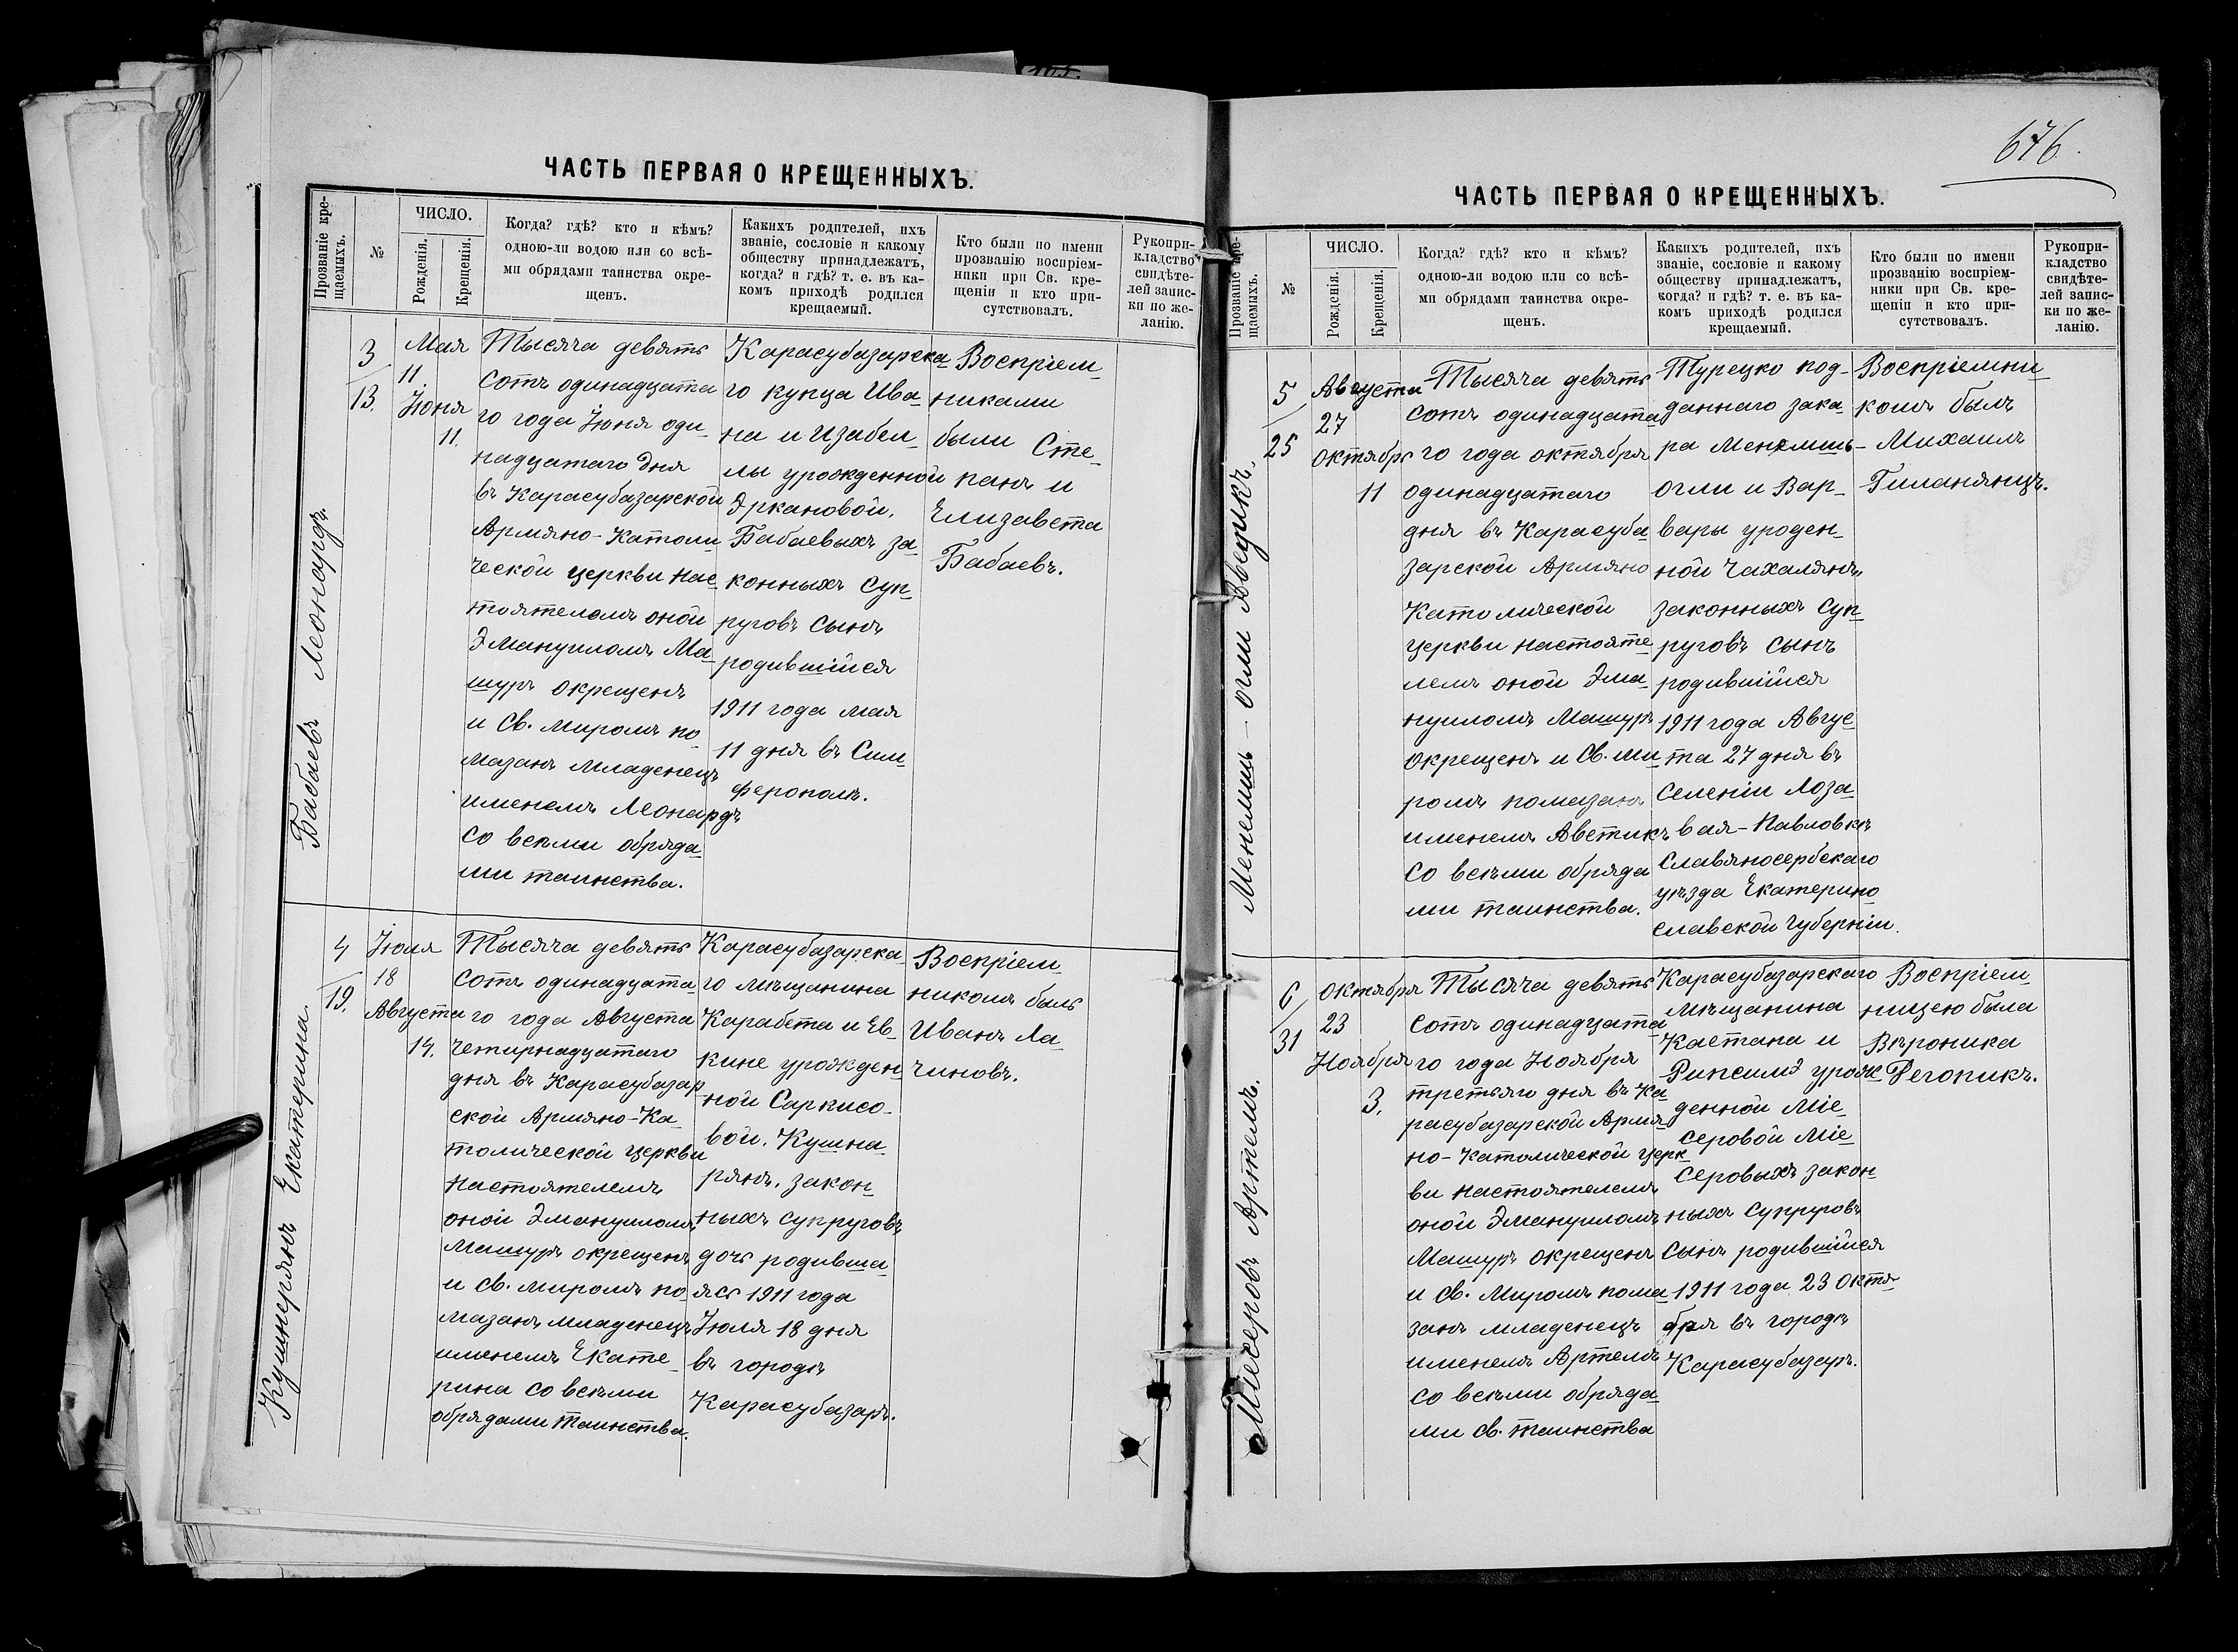 ЧАСТЬ ПЕРВАЯ О КРЕЩЕННЫХЪ.
Прозваніе кре-
щаемыхъ.
№
ЧИСЛО.
Рожденія.
Крещенія.
Когда? гдѣ? кто и кѣмъ?
одною-ли водою или со всѣ-
ми обрядами таинства окре-
щенъ.
Какихъ родителей, ихъ
званіе, сословіе и какому
обществу принадлежатъ,
когда? и гдѣ? т. е. въ ка-
комъ приходѣ родился
крещаемый.
Кто были по имени
прозванію воспріем-
ники при Св. кре-
щеніи и кто при-
сутствовалъ.
Рукопри-
кладство
свидѣте-
лей запис-
ки по же-
ланію.
Бабаевъ Леонардъ
3
13.
Мая
11
Іюня
11.
Тысяча девять
сотъ одинадцата
го года Іюня оди-
надцатаго дня
въ Карасубазарской
Армяно-Католи
ческой церкви Нас-
тоятелемъ оной
Эмануиломъ Ма-
шуръ окрещенъ
и Св. миромъ по-
мазанъ младенецъ
именемъ Леонардъ
со всѣми обряда-
ми таинства.
Карасубазарска-
го купца Ива-
на и Изабел-
лы урожденной
Эркановой.
Бабаевыхъ за-
конныхъ суп-
руговъ сынъ
родившійся
1911 года мая
11 дня въ Сим-
ферополѣ.
Воспріем-
никами
были Сте-
панъ и
Елизавета
Бабаевъ.
Кушнерянъ Екатерина
4
19.
Іюля
18
Августа
14.
Тысяча девять
сотъ одинадцата-
го года Августа
четырнадцатаго
дня въ Карасубазар
ской Армяно-Ка
толической церкви
Настоятелемъ
оной Эмануиломъ
Машуръ окрещенъ
и св. миромъ по-
мазанъ младенецъ
именемъ Екате-
рина со всѣми
обрядами таинства.
Карасубазарска-
го мѣщанина
Карабета и Ев-
кине урожден-
ной Саркисо-
вой. Кушна-
рянъ. закон-
ныхъ супруговъ
дочь родивша-
яся 1911 года
Іюля 18 дня
въ городѣ
Карасубазарѣ.
Воспріем-
никомъ былъ
Иванъ Ла-
чиновъ.
676.
ЧАСТЬ ПЕРВАЯ О КРЕЩЕННЫХЪ.
Прозваніе кре-
щаемыхъ.
№
ЧИСЛО.
Рожденія.
Крещенія.
Когда? гдѣ? кто и кѣмъ?
одною-ли водою или со всѣ-
ми обрядами таинства окре-
щенъ.
Какихъ родителей, ихъ
званіе, сословіе и какому
обществу принадлежатъ,
когда? и гдѣ? т. е. въ ка-
комъ приходѣ родился
крещаемый.
Кто были по имени
прозванію воспріем-
ники при Св. кре-
щеніи и кто при-
сутствовалъ.
Рукопри-
кладство
свидѣте-
лей запис-
ки по же-
ланію.
Менемшь-огли Аветикъ.
5
25
Августа
27
Октябрь
11
Тысяча девять
сотъ одинадцата
го года октября
одинадцатаго
дня въ Карасуба
зарской Армяно
Католической
церкви настояте
лемъ оной Эма-
нуиломъ Машуръ
окрещенъ и Св. ми
ромъ помазанъ
именемъ Аветикъ
со всѣми обряда
ми таинства.
Турецко под-
даннаго Зака-
ра Менемшь-
огли и Вар-
вары урожден-
ной Чахалянъ,
законныхъ суп-
руговъ сынъ
родившійся
1911 года Авгус-
та 27 дня въ
селеніи Лоза-
вая-Павловкѣ
Славяносербскаго
уѣзда Екатерино
славской губерніи.
Воспріемни-
комъ былъ
Михаилъ
Гиланянцъ.
Місеровъ Артемъ.
6
31
Октября
23
Ноября
3.
Тысяча девять
сотъ одинадцата
го года Ноября
третьяго дня въ Ка-
расубазарской Армя-
но-Католической церк
ви настоятелемъ
оной Эмануиломъ
Машуръ окрещенъ
и Св. Миромъ пома-
занъ младенецъ
именемъ Артемъ
со всѣми обряда-
ми Св. таинства
Карасубазарскаго
мѣщанина
Кастана и
Рипсимэ урож
денной Міе-
серовой Міе-
серовыхъ закон-
ныхъ супруговъ
сынъ родившійся
1911 года 23 Октя-
бря въ городѣ
Карасубазарѣ.
Воспріем-
ницею была
Вѣроника
Дегопикъ.